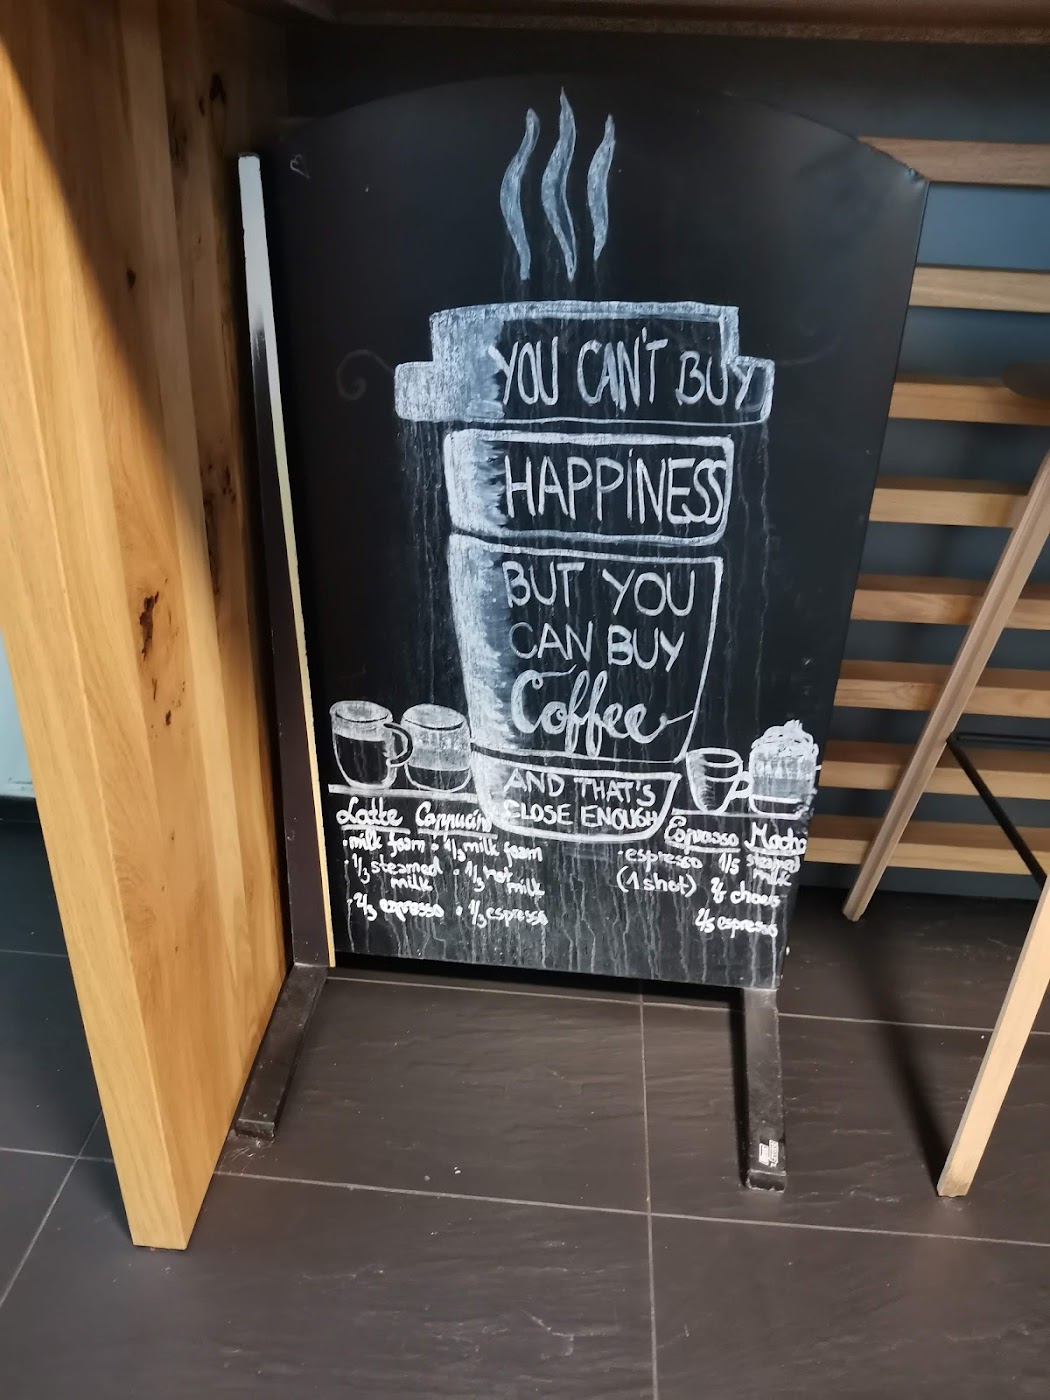 YOU CAN'T BUY
HAPPINESS
BUT YOU
CAN BUY
Coffee
AND THAT'S
CLOSE ENOUGH
Latte
• milk foam
• 1/3 steamed
milk
• 2/3 espresso
• 1/3 milk foam
• 1/3 hot
milk
• 1/3 espresso
Espresso
• espresso
(1 shot)
Mocha
1/5 steamed
milk
2/5 espresso